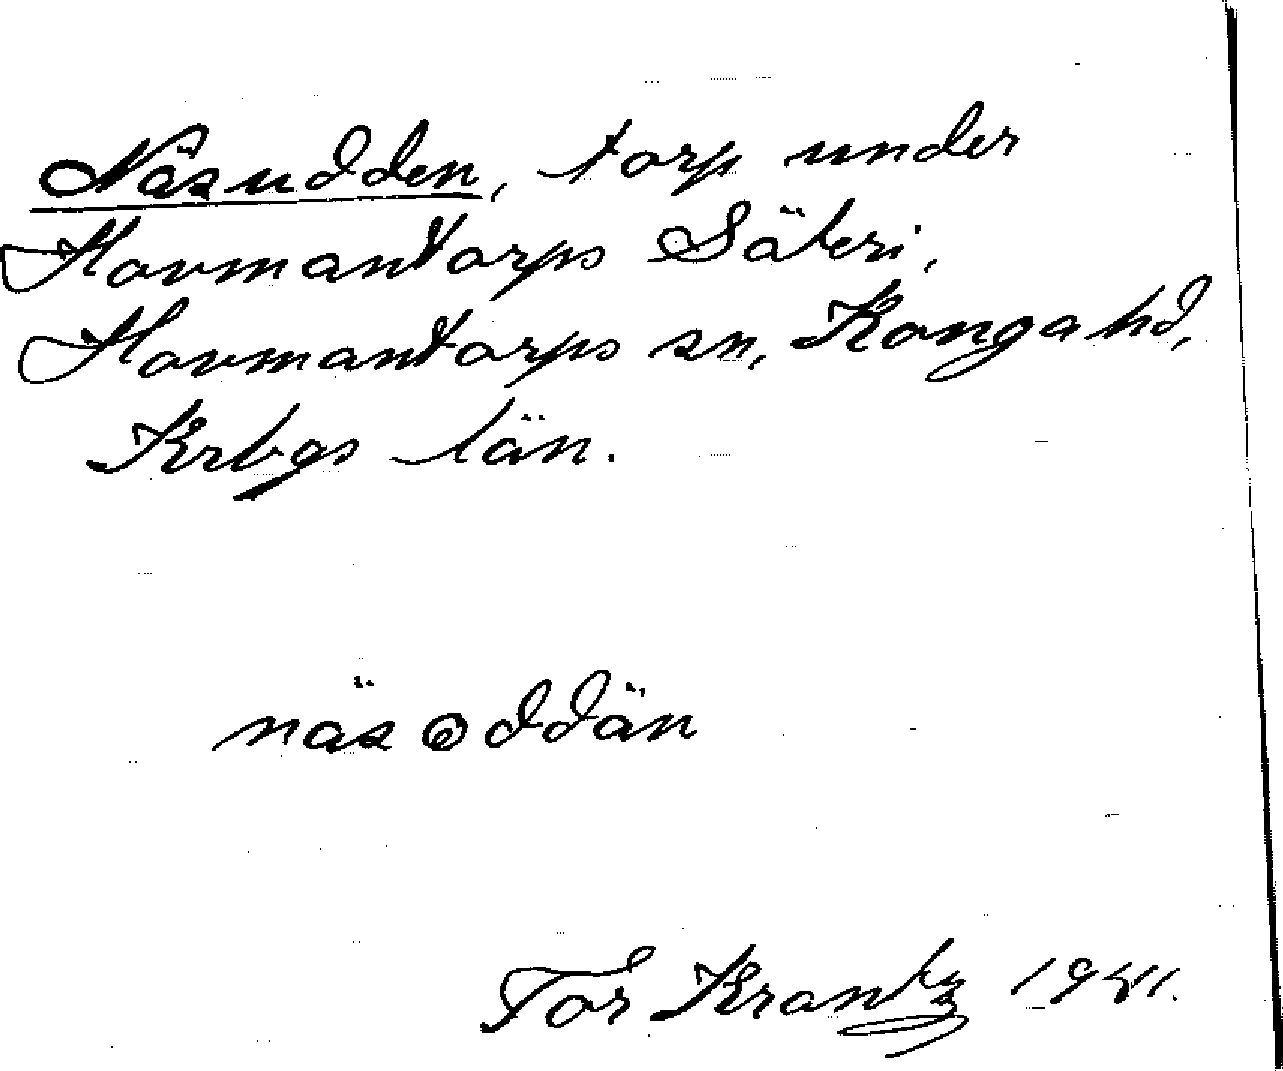 Näsudden, torp under
Hovmantorps Säteri,
Hovmantorps sn, Konga hd,
Krbgs län.
näsoddän
Tor Krantz 1941.